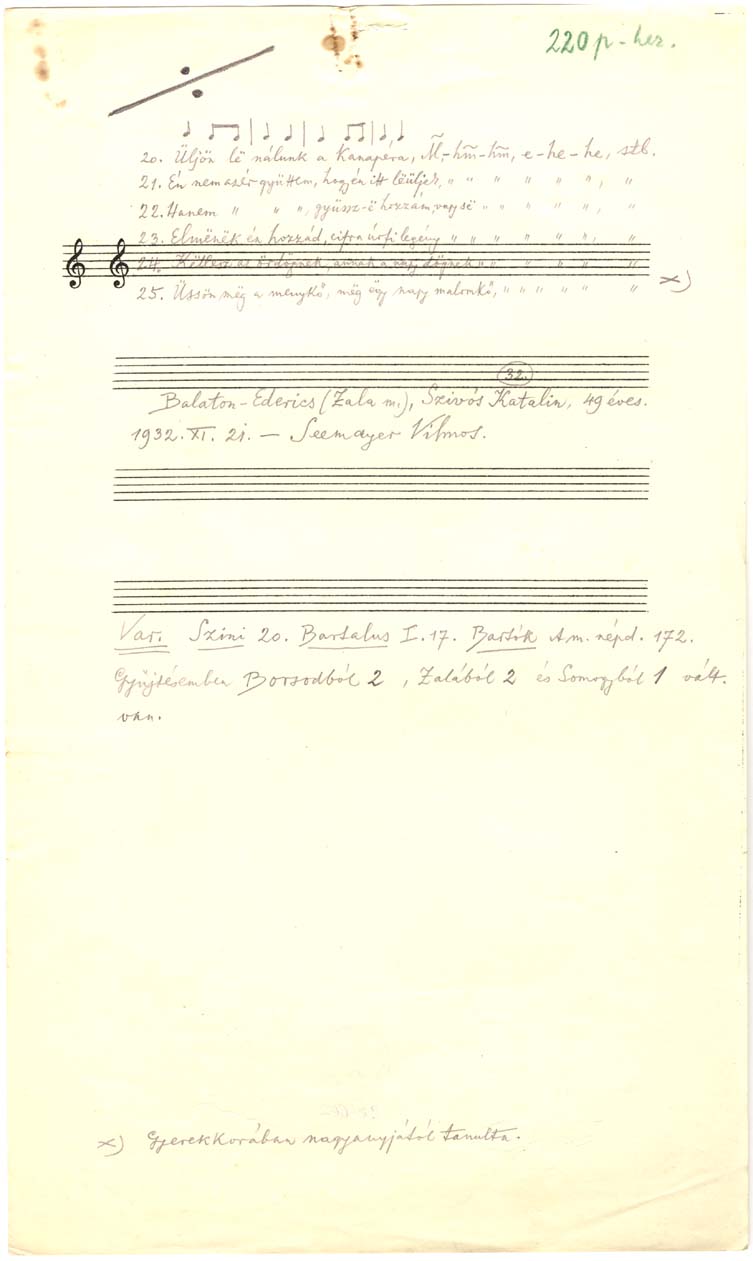 220 p - hez.
20. Üljön lë nálunk a kanapéra, M̃,- hm̃ - hm̃, e - he - he, stb.
21. Én nem azér gyüttem, hogy én itt lëüljek, " " " " " " , "
22. Hanem " " " , gyüssz-ë hozzám, vagy së " " " " " , "
23. Elmënëk én hozzád, cifra úrfi legény " " " " " " , "
24. Këllesz az ördögnek, annak a nagy dögnek " " " " " " "
25. Üssön mëg a menykő, mëg ëgy nagy malomkő, " " " " " " " x)
32.
Balaton-Ederics (Zala m.), Szivós Katalin, 49 éves.
1932. XI. 21. — Seemayer Vilmos.
Var. Szini 20. Bartalus I. 17. Bartók A m. népd. 172.
Gyüjtésemben Borsodból 2 , Zalából 2 és Somogyból 1 vált.
van.
x) Gyerekkorában nagyanyjától tanulta.